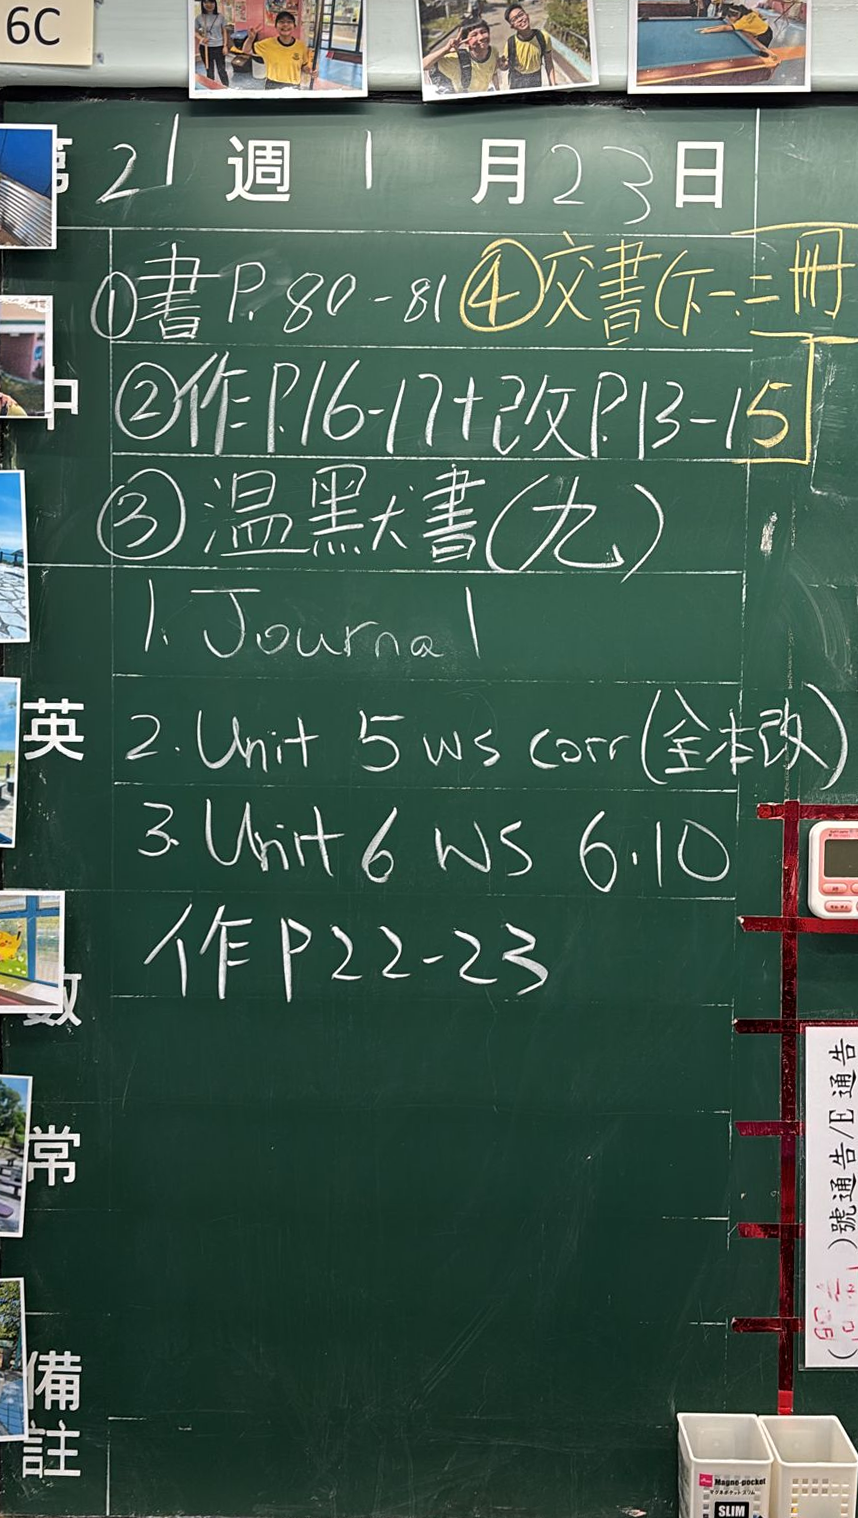 6C
第21週1月23日
中
①書P.80-81 ④交書(下一.二冊
②作P.16-17+改P.13-15
③溫默書(九)
英
1. Journal
2. Unit 5 ws corr(全本改)
3. Unit 6 WS 6.10
數
作P22-23
常
備註
)號通告/E通告
Magne-pocket
SLIM